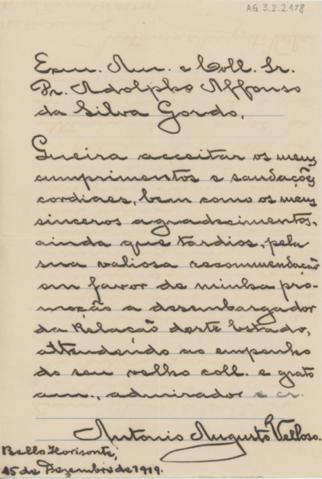 AG 3.2.2.178
Exm. Am. e Coll. Sr.
Dr. Adolpho Affonso
da Silva Gordo,
Queira acceitar os meus
cumprimentos e saudações
cordiaes, bem como os meus
sinceros agradecimentos,
ainda que tardios, pela
sua valiosa recommendação
em favor de minha pro-
moção a desembargador
da Relação deste Estado,
attendendo ao empenho
do seu velho coll. e grato
am., admirador e cr.
Antonio Augusto Velloso.
Bello Horisonte,
15 de Dezembro de 1919.